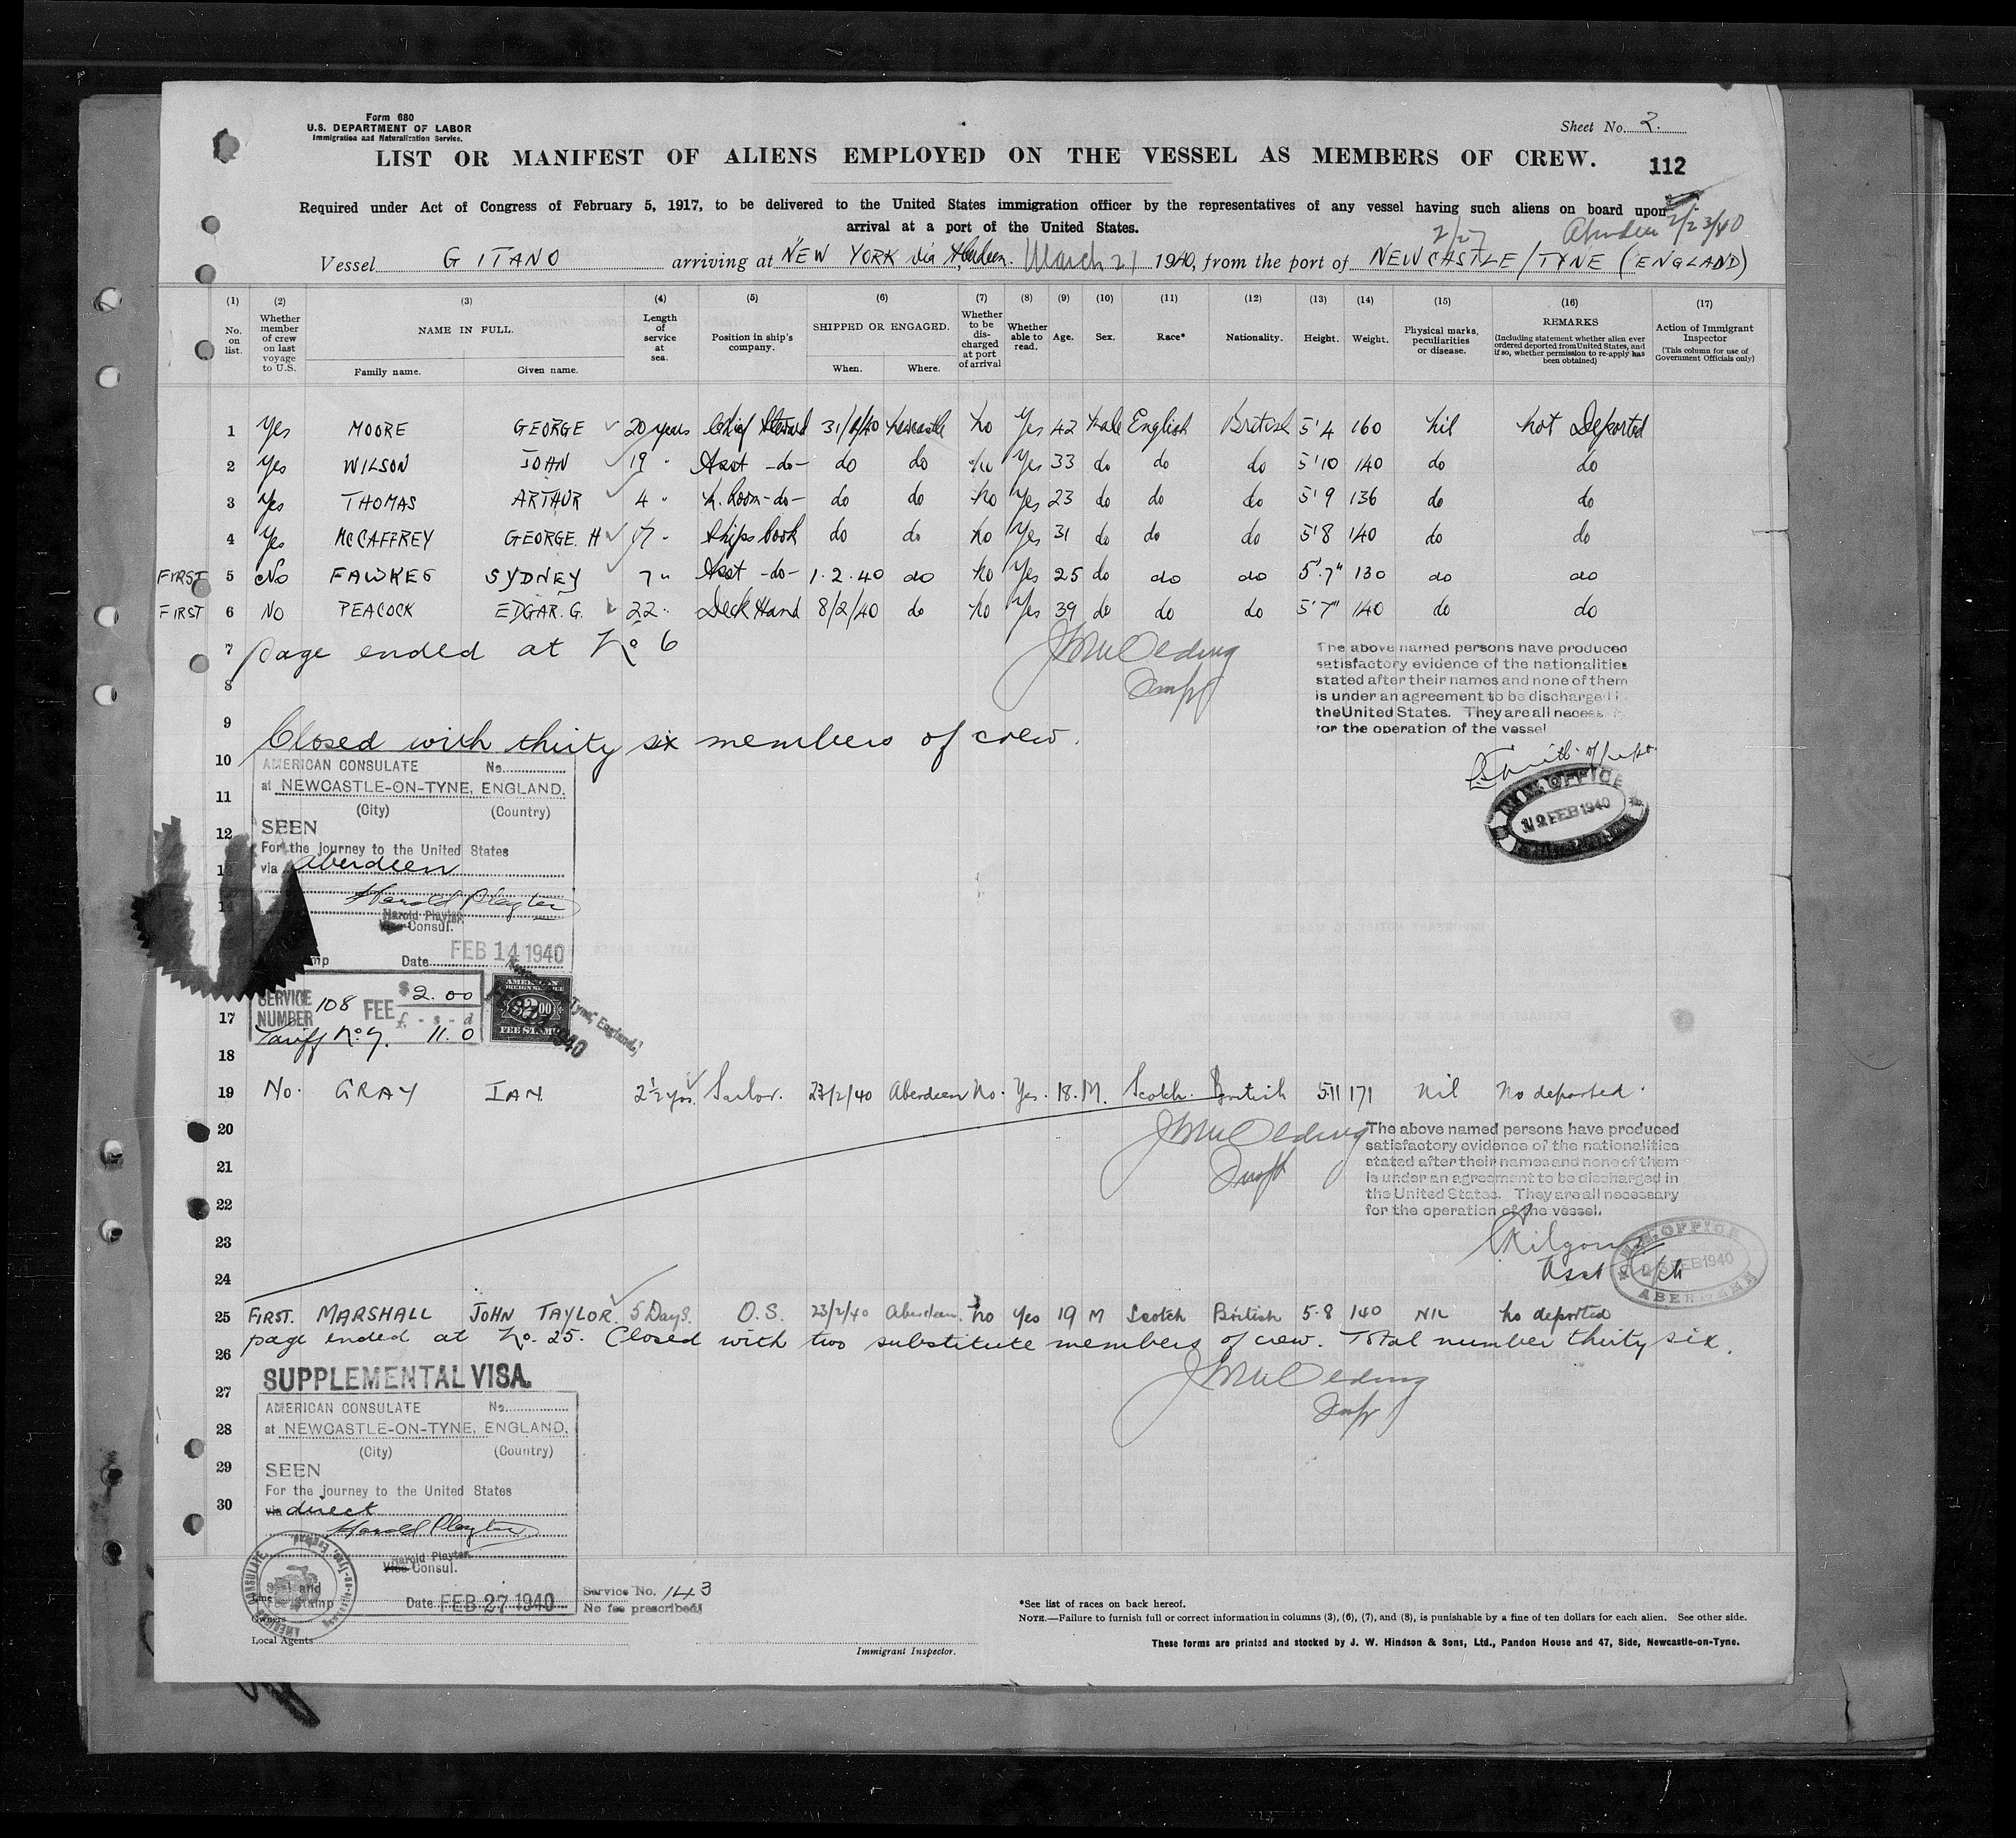 Form 680
U.S. DEPARTMENT OF LABOR
Immigration and Naturalization Service.
Sheet No. 2.
LIST OR MANIFEST OF ALIENS EMPLOYED ON THE VESSEL AS MEMBERS OF CREW.
112
Required under Act of Congress of February 5, 1917, to be delivered to the United States immigration officer by the representatives of any vessel having such aliens on board upon
arrival at a port of the United States.
2/27 Aberdeen 2/23/40
Vessel GITANO arriving at NEW YORK via Aberdeen. March 21 1940, from the port of NEWCASTLE/TYNE (ENGLAND)
(1) (2) (3) (4) (5) (6) (7) (8) (9) (10) (11) (12) (13) (14) (15) (16) (17)
No. on list. Whether member of crew on last voyage to U.S. NAME IN FULL. Family name. Given name. Length of service at sea. Position in ship's company. SHIPPED OR ENGAGED. When. Where. Whether to be discharged at port of arrival Whether able to read. Age. Sex. Race* Nationality. Height. Weight. Physical marks, peculiarities or disease. REMARKS (Including statement whether alien ever ordered deported from United States, and if so, whether permission to re-apply has been obtained) Action of Immigrant Inspector (This column for use of Government Officials only)
1 Yes MOORE GEORGE 20 years Chief Steward 31/1/40 Newcastle No Yes 42 Male English British 5'4 160 Nil Not Deported
2 Yes WILSON JOHN 19 " Asst -do- do do No Yes 33 do do do 5'10 140 do do
3 Yes THOMAS ARTHUR 4 " M. Room -do- do do No Yes 23 do do do 5'9 136 do do
4 Yes McCAFFREY GEORGE. H 17 " Ships Cook do do No Yes 31 do do do 5'8 140 do do
FIRST 5 No FAWKES SYDNEY 7 " Asst -do- 1.2.40 do No Yes 25 do do do 5'.7" 130 do do
FIRST 6 No PEACOCK EDGAR. G. 22 " Deck Hand 8/2/40 do No Yes 39 do do do 5'7" 140 do do
7 page ended at No 6
The above named persons have produced
satisfactory evidence of the nationalities
stated after their names and none of them
is under an agreement to be discharged in
the United States. They are all necessary
for the operation of the vessel
8
9
Closed with thirty six members of crew.
10
AMERICAN CONSULATE No.
11
at NEWCASTLE-ON-TYNE, ENGLAND.
(City) (Country)
12
SEEN
For the journey to the United States
via Aberdeen
Harold Playter
Harold Playter.
Vice Consul.
Date FEB 14 1940
12 FEB 1940
SERVICE NUMBER 108 FEE $2.00
£ - s - d
Tariff No 7. 11. 0
AMERICAN FOREIGN SERVICE
$2.00
FEE STAMP
17
18
19 No. GRAY IAN 2½ yrs. Sailor. 23/2/40 Aberdeen No. Yes. 18. M. Scotch. British 5.11 171 Nil No deported.
20
The above named persons have produced
satisfactory evidence of the nationalities
stated after their names and none of them
is under an agreement to be discharged in
the United States. They are all necessary
for the operation of the vessel.
21
22
23
24
Kilgour
Asst
FEB 1940
ABERDEEN
25 FIRST. MARSHALL JOHN TAYLOR. 5 Days. O.S. 23/2/40 Aberdeen. No Yes 19 M Scotch British 5.8 140 NIL No deported
page ended at No. 25. Closed with two substitute members of crew. Total number thirty six.
26
SUPPLEMENTAL VISA.
27
AMERICAN CONSULATE No.
28
at NEWCASTLE-ON-TYNE, ENGLAND.
(City) (Country)
29
SEEN
For the journey to the United States
30
via direct
Harold Playter
Harold Playter.
Vice Consul.
Date FEB 27 1940
Service No. 143
No fee prescribed
Owners
Local Agents
Immigrant Inspector.
*See list of races on back hereof.
NOTE.—Failure to furnish full or correct information in columns (3), (6), (7), and (8), is punishable by a fine of ten dollars for each alien. See other side.
These forms are printed and stocked by J. W. Hindson & Sons, Ltd., Pandon House and 47, Side, Newcastle-on-Tyne.